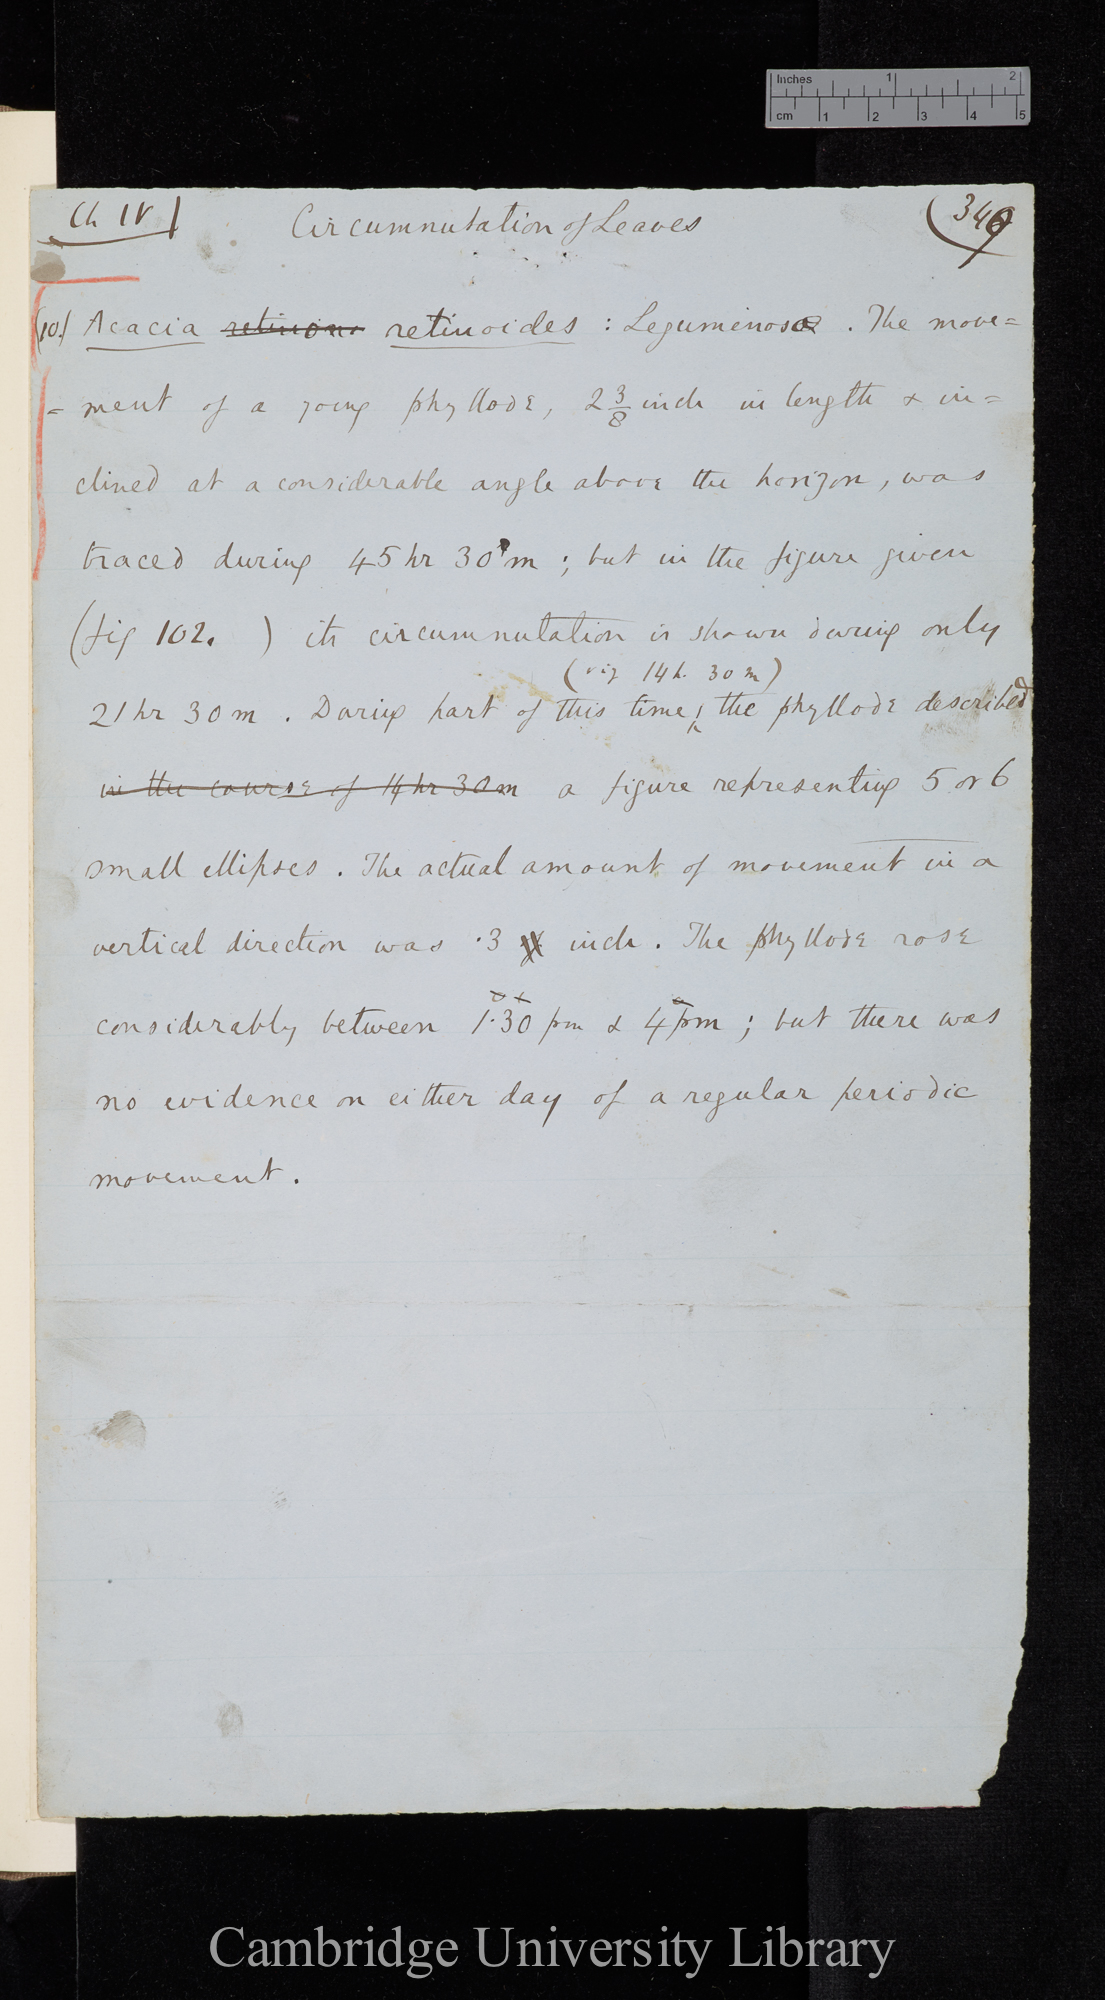 Inches 1 2
cm 1 2 3 4 5
Ch IV
Circumnutation of Leaves
(346
(10.) Acacia retinoides : Leguminosæ . The move=
= ment of a young phyllode, 2 3/8 inch in length & in=
clined at a considerable angle above the horizon, was
traced during 45 hr 30 m ; but in the figure given
(fig 102. ) its circumnutation is shown during only
(viz 14h. 30 m)
21 hr 30 m . During part of this time, the phyllode described
in the course of 14 hr 30 m a figure representing 5 or 6
small ellipses . The actual amount of movement in a
vertical direction was ·3 inch . The phyllode rose
considerably between 1·30 pm & 4 pm ; but there was
no evidence on either day of a regular periodic
movement .
Cambridge University Library